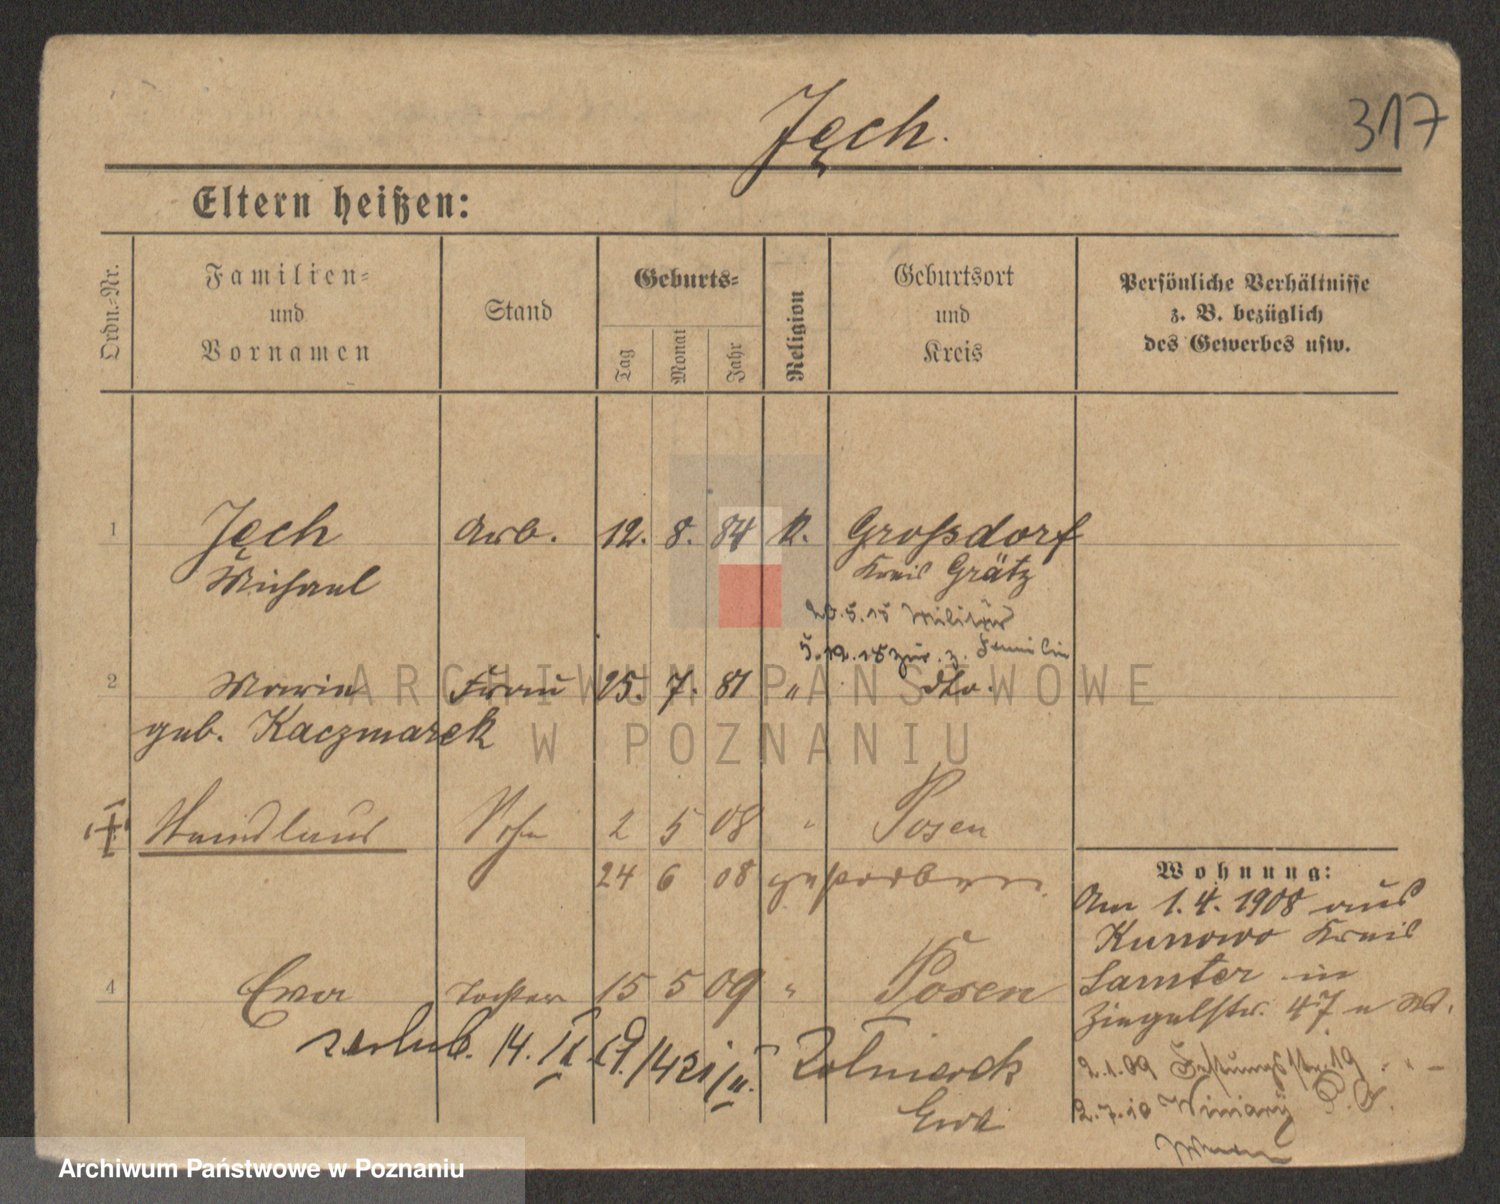 Jęch.
317
Eltern heißen:
Ordn.-Nr.
Familien-
und
Vornamen
Stand
Geburts-
Tag
Monat
Jahr
Religion
Geburtsort
und
Kreis
Persönliche Verhältnisse
z. B. bezüglich
des Gewerbes usw.
1 Jęch Arb. 12. 8. 84 K. Grofsdorf
Michael Kreis Grätz
20.5.15 Militär
5.12.18 zur. z. Familie
2 Maria Frau 25. 7. 81 " dto.
geb. Kaczmarek
Sohn 2 5 08 " Posen
24 6 08 gestorben.
Wohnung:
Am 1.4.1908 aus
Kunowo Kreis
Samter in
Ziegelstr. 47
4 Ewa Tochter 15 5 09 " Posen
14.
Ewa
2.1.09 Festungsstr. 19
2.7.10 Winiary
ARCHIWUM PAŃSTWOWE
W POZNANIU
Archiwum Państwowe w Poznaniu